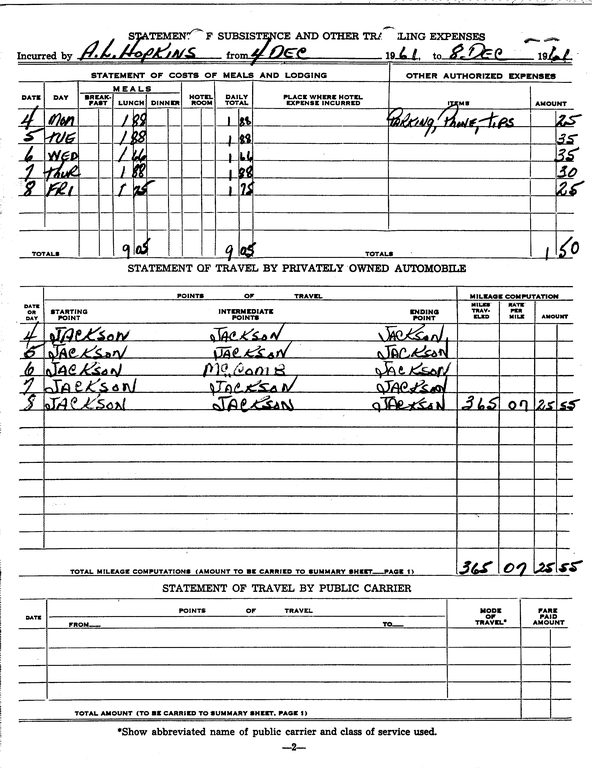 STATEMENT F SUBSISTENCE AND OTHER TRA LING EXPENSES
Incurred by A.L. HOPKINS from 4 DEC 1961, to 8 DEC 1961
STATEMENT OF COSTS OF MEALS AND LODGING OTHER AUTHORIZED EXPENSES
DATE DAY MEALS BREAK-FAST LUNCH DINNER HOTEL ROOM DAILY TOTAL PLACE WHERE HOTEL EXPENSE INCURRED ITEMS AMOUNT
4 MON 1 88 1 88 PARKING, PHONE, TIPS 25
5 TUE 1 88 1 88 35
6 WED 1 66 1 66 35
7 THUR 1 88 1 88 30
8 FRI 1 75 1 75 25
TOTALS 9 05 9 05 TOTALS 1 50
STATEMENT OF TRAVEL BY PRIVATELY OWNED AUTOMOBILE
DATE OR DAY POINTS OF TRAVEL MILEAGE COMPUTATION
STARTING POINT INTERMEDIATE POINTS ENDING POINT MILES TRAV-ELED RATE PER MILE AMOUNT
4 JACKSON JACKSON JACKSON
5 JACKSON JACKSON JACKSON
6 JACKSON MC COMB JACKSON
7 JACKSON JACKSON JACKSON
8 JACKSON JACKSON JACKSON 365 07 25 55
TOTAL MILEAGE COMPUTATIONS (AMOUNT TO BE CARRIED TO SUMMARY SHEET—PAGE 1) 365 07 25 55
STATEMENT OF TRAVEL BY PUBLIC CARRIER
DATE POINTS OF TRAVEL MODE OF TRAVEL* FARE PAID AMOUNT
FROM— TO—
TOTAL AMOUNT (TO BE CARRIED TO SUMMARY SHEET, PAGE 1)
*Show abbreviated name of public carrier and class of service used.
—2—